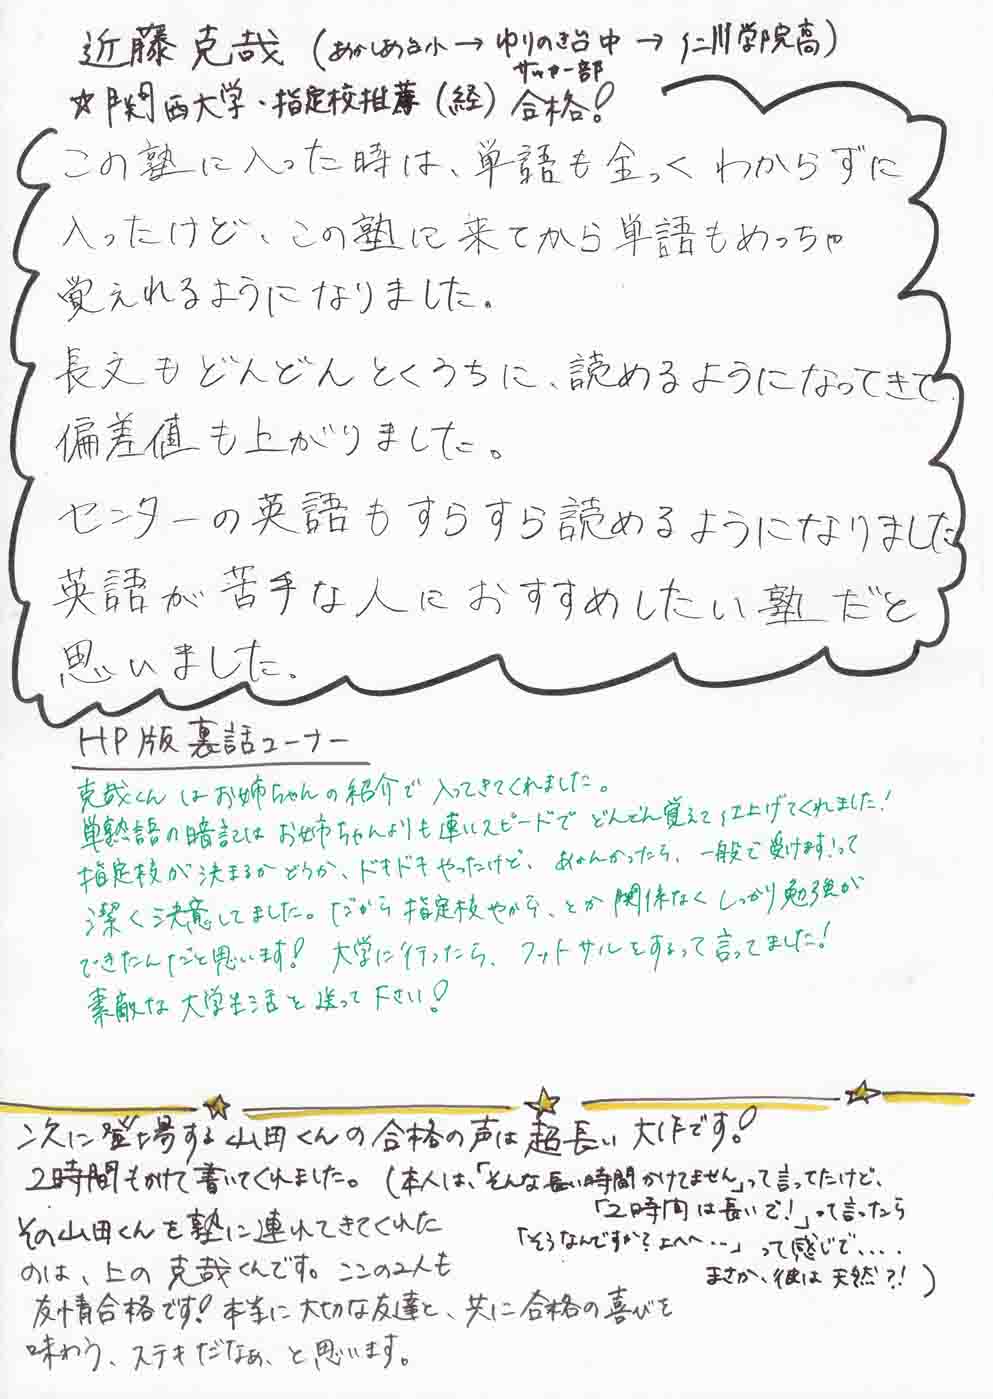 近藤克哉(あかしあ台小→ゆりのき台中→仁川学院高)
サッカー部
☆関西大学・指定校推薦(経)合格!
この塾に入った時は、単語も全っくわからずに
入ったけど、この塾に来てから単語もめっちゃ
覚えれるようになりました。
長文もどんどんとくうちに、読めるようになってきて
偏差値も上がりました。
センターの英語もすらすら読めるようになりました
英語が苦手な人におすすめしたい塾だと
思いました。
HP版裏話コーナー
克哉くんはお姉ちゃんの紹介で入ってきてくれました。
単熟語の暗記はお姉ちゃんよりも速いスピードでどんどん覚えて仕上げてくれました!
指定校が決まるかどうか、ドキドキやったけど、あかんかったら、一般で受けます!って
潔く決意してました。だから指定校やから、とか関係なくしっかり勉強が
できたんだと思います!大学に行ったら、フットサルをするって言ってました!
素敵な大学生活を送って下さい!
次に登場する山田くんの合格の声は超長い大作です!
2時間もかけて書いてくれました。(本人は、「そんな長い時間かけてません」って言ってたけど、
「2時間は長いで!」って言ったら
「そうなんですか?エヘヘ…」って感じで、・・・
まさか、彼は天然?!)
その山田くんを塾に連れてきてくれた
のは、上の克哉くんです。ここの2人も
友情合格です!本当に大切な友達と、共に合格の喜びを
味わう、ステキだなぁ、と思います。